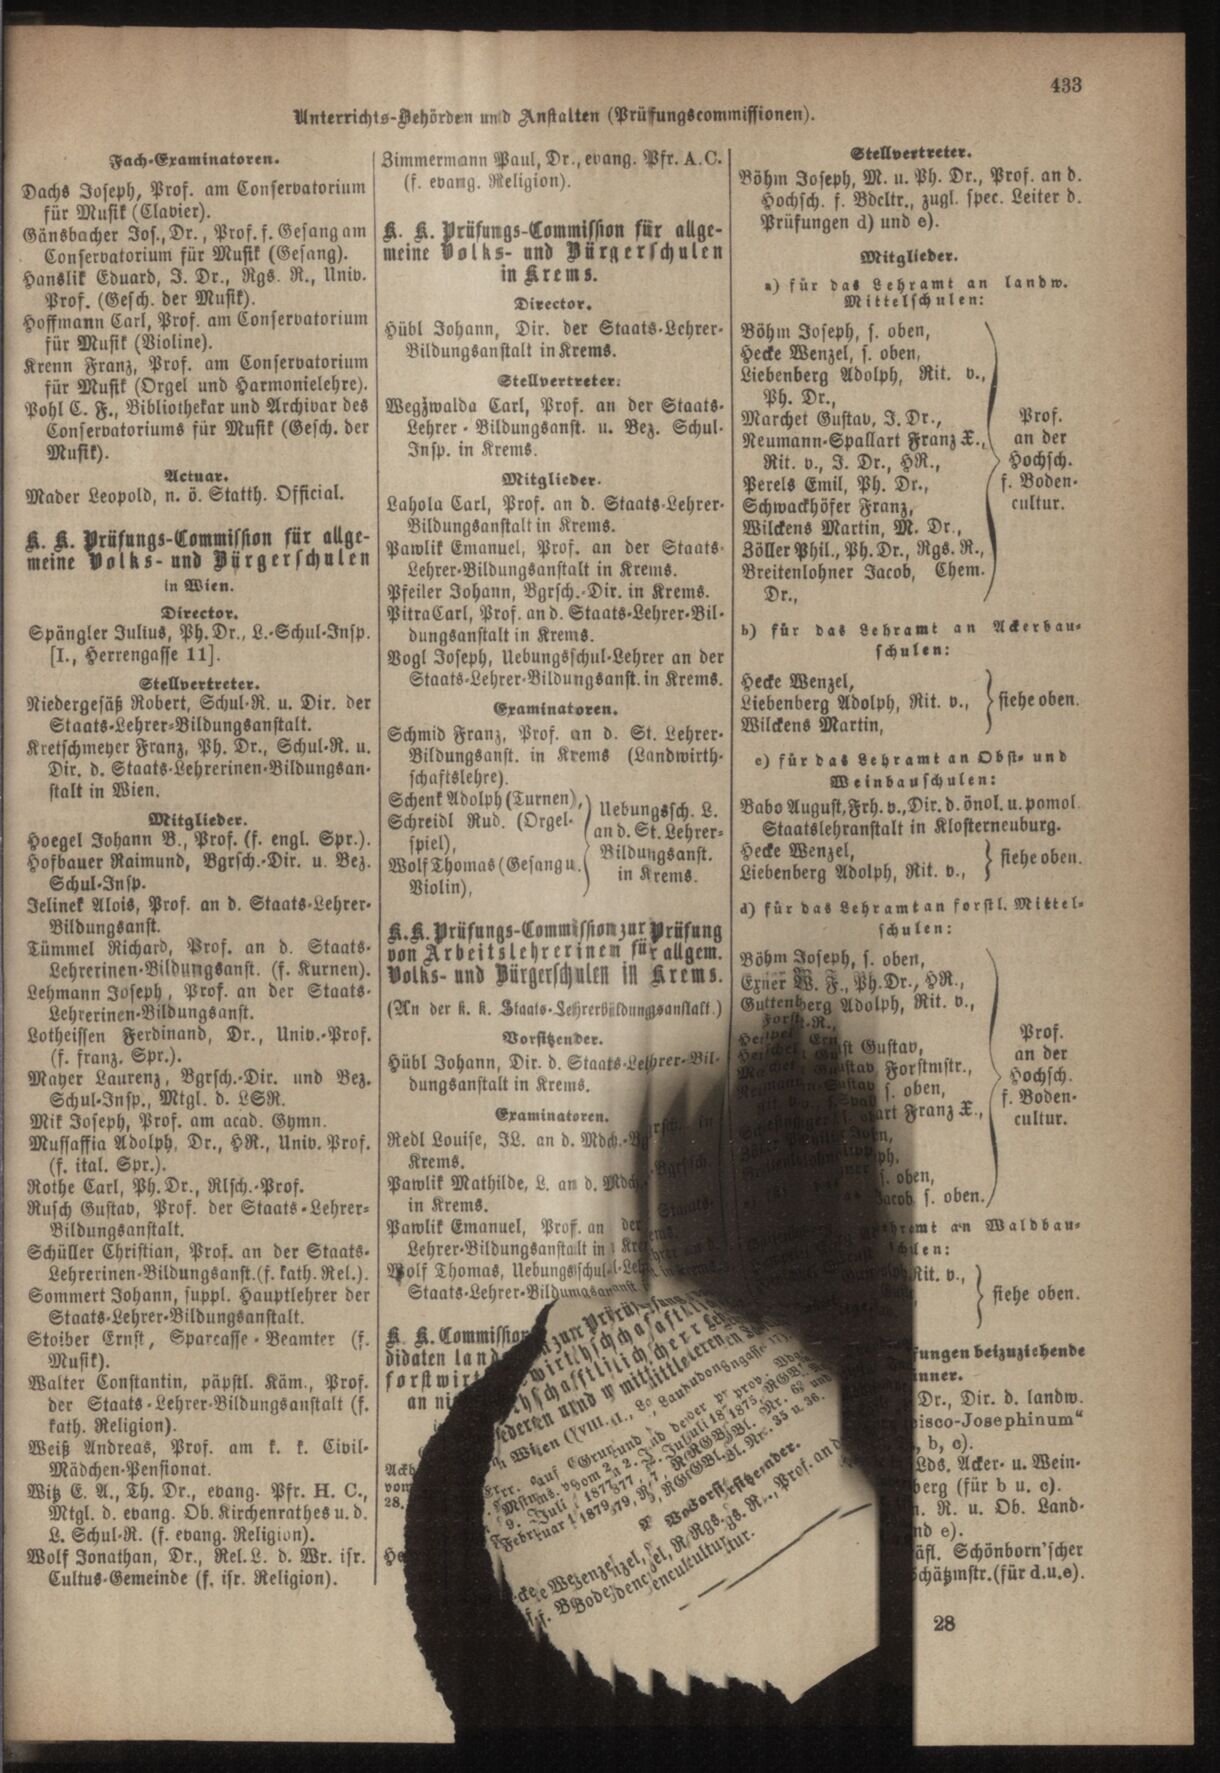 433
Unterrichts-Behörden und Anstalten (Prüfungscommissionen).
Fach-Examinatoren.
Dachs Joseph, Prof. am Conservatorium
für Musik (Clavier).
Gänsbacher Jos., Dr., Prof. f. Gesang am
Conservatorium für Musik (Gesang).
Hanslik Eduard, J. Dr., Rgs. R., Univ.
Prof. (Gesch. der Musik).
Hoffmann Carl, Prof. am Conservatorium
für Musik (Violine).
Krenn Franz, Prof. am Conservatorium
für Musik (Orgel und Harmonielehre).
Pohl C. F., Bibliothekar und Archivar des
Conservatoriums für Musik (Gesch. der
Musik).
Actuar.
Mader Leopold, n. ö. Statth. Official.
K. K. Prüfungs-Commission für allge-
meine Volks- und Bürgerschulen
in Wien.
Director.
Spängler Julius, Ph. Dr., L.-Schul-Insp.
[I., Herrengasse 11].
Stellvertreter.
Niedergesäß Robert, Schul-R. u. Dir. der
Staats-Lehrer-Bildungsanstalt.
Kretschmeyer Franz, Ph. Dr., Schul-R. u.
Dir. d. Staats-Lehrerinen-Bildungsan-
stalt in Wien.
Mitglieder.
Hoegel Johann B., Prof. (f. engl. Spr.).
Hofbauer Raimund, Bgrsch.-Dir. u. Bez.
Schul-Insp.
Jelinek Alois, Prof. an d. Staats-Lehrer-
Bildungsanst.
Tümmel Richard, Prof. an d. Staats-
Lehrerinen-Bildungsanst. (f. Kurnen).
Lehmann Joseph, Prof. an der Staats-
Lehrerinen-Bildungsanst.
Lotheissen Ferdinand, Dr., Univ.-Prof.
(f. franz. Spr.).
Mayer Laurenz, Bgrsch.-Dir. und Bez.
Schul-Insp., Mtgl. d. LSR.
Mik Joseph, Prof. am acad. Gymn.
Mussaffia Adolph, Dr., HR., Univ. Prof.
(f. ital. Spr.).
Rothe Carl, Ph. Dr., Rlsch.-Prof.
Rusch Gustav, Prof. der Staats-Lehrer-
Bildungsanstalt.
Schüller Christian, Prof. an der Staats-
Lehrerinen-Bildungsanst. (f. kath. Rel.).
Sommert Johann, suppl. Hauptlehrer der
Staats-Lehrer-Bildungsanstalt.
Stoiber Ernst, Sparcasse-Beamter (f.
Musik).
Walter Constantin, päpstl. Käm., Prof.
der Staats-Lehrer-Bildungsanstalt (f.
kath. Religion).
Weiß Andreas, Prof. am k. k. Civil-
Mädchen-Pensionat.
Witz E. A., Th. Dr., evang. Pfr. H. C.,
Mtgl. d. evang. Ob. Kirchenrathes u. d.
L. Schul-R. (f. evang. Religion).
Wolf Jonathan, Dr., Rel. L. d. Wr. isr.
Cultus-Gemeinde (f. isr. Religion).
Zimmermann Paul, Dr., evang. Pfr. A. C.
(f. evang. Religion).
K. K. Prüfungs-Commission für allge-
meine Volks- und Bürgerschulen
in Krems.
Director.
Hübl Johann, Dir. der Staats-Lehrer-
Bildungsanstalt in Krems.
Stellvertreter.
Wegžwalda Carl, Prof. an der Staats-
Lehrer-Bildungsanst. u. Bez. Schul-
Insp. in Krems.
Mitglieder.
Lahola Carl, Prof. an d. Staats-Lehrer-
Bildungsanstalt in Krems.
Pawlik Emanuel, Prof. an der Staats-
Lehrer-Bildungsanstalt in Krems.
Pfeiler Johann, Bgrsch.-Dir. in Krems.
Pitra Carl, Prof. an d. Staats-Lehrer-Bil-
dungsanstalt in Krems.
Vogl Joseph, Uebungsschul-Lehrer an der
Staats-Lehrer-Bildungsanst. in Krems.
Examinatoren.
Schmid Franz, Prof. an d. St. Lehrer-
Bildungsanst. in Krems (Landwirth-
schaftslehre).
Schenk Adolph (Turnen),
Schreidl Rud. (Orgel-
spiel),
Wolf Thomas (Gesang u.
Violin),
Uebungssch. L.
an d. St. Lehrer-
Bildungsanst.
in Krems.
K. K. Prüfungs-Commission zur Prüfung
von Arbeitslehrerinen für allgem.
Volks- und Bürgerschulen in Krems.
(An der k. k. Staats-Lehrerbildungsanstalt.)
Vorsitzender.
Hübl Johann, Dir. d. Staats-Lehrer-Bil-
dungsanstalt in Krems.
Examinatoren.
Redl Louise, JL. an d. Mdch.-
Krems.
Pawlik Mathilde, L. an d. Mdch.
in Krems.
Pawlik Emanuel, Prof. an der
Lehrer-Bildungsanstalt in
Wolf Thomas, Uebungsschul-
Staats-Lehrer-Bildungsanst
K. K. Commission
didaten land
forstwirt
an ni
Stellvertreter.
Böhm Joseph, M. u. Ph. Dr., Prof. an d.
Hochsch. f. Bdcltr., zugl. spec. Leiter d.
Prüfungen d) und e).
Mitglieder.
a) für das Lehramt an landw.
Mittelschulen:
Böhm Joseph, s. oben,
Hecke Wenzel, s. oben,
Liebenberg Adolph, Rit. v.,
Ph. Dr.,
Marchet Gustav, J. Dr.,
Neumann-Spallart Franz X.,
Rit. v., J. Dr., HR.,
Perels Emil, Ph. Dr.,
Schwackhöfer Franz,
Wilckens Martin, M. Dr.,
Zöller Phil., Ph. Dr., Rgs. R.,
Breitenlohner Jacob, Chem.
Dr.,
Prof.
an der
Hochsch.
f. Boden-
cultur.
b) für das Lehramt an Ackerbau-
schulen:
Hecke Wenzel,
Liebenberg Adolph, Rit. v.,
Wilckens Martin,
siehe oben.
c) für das Lehramt an Obst- und
Weinbauschulen:
Babo August, Frh. v., Dir. d. önol. u. pomol.
Staatslehranstalt in Klosterneuburg.
Hecke Wenzel,
Liebenberg Adolph, Rit. v.,
siehe oben.
d) für das Lehramt an forstl. Mittel-
schulen:
Böhm Joseph, s. oben,
Exner W. F., Ph. Dr., HR.,
Guttenberg Adolph, Rit. v.,
Gustav,
Forstmstr.,
s. oben,
Franz X.,
s. oben,
s. oben.
Prof.
an der
Hochsch.
f. Boden-
cultur.
an Waldbau-
Rit. v.,
siehe oben.
beizuziehende
Dr., Dir. d. landw.
isco-Josephinum"
, b, c).
Lds. Acker- u. Wein-
berg (für b u. c).
n. R. u. Ob. Land-
nd e).
äfl. Schönborn'scher
chätzmstr. (für d. u. e).
28